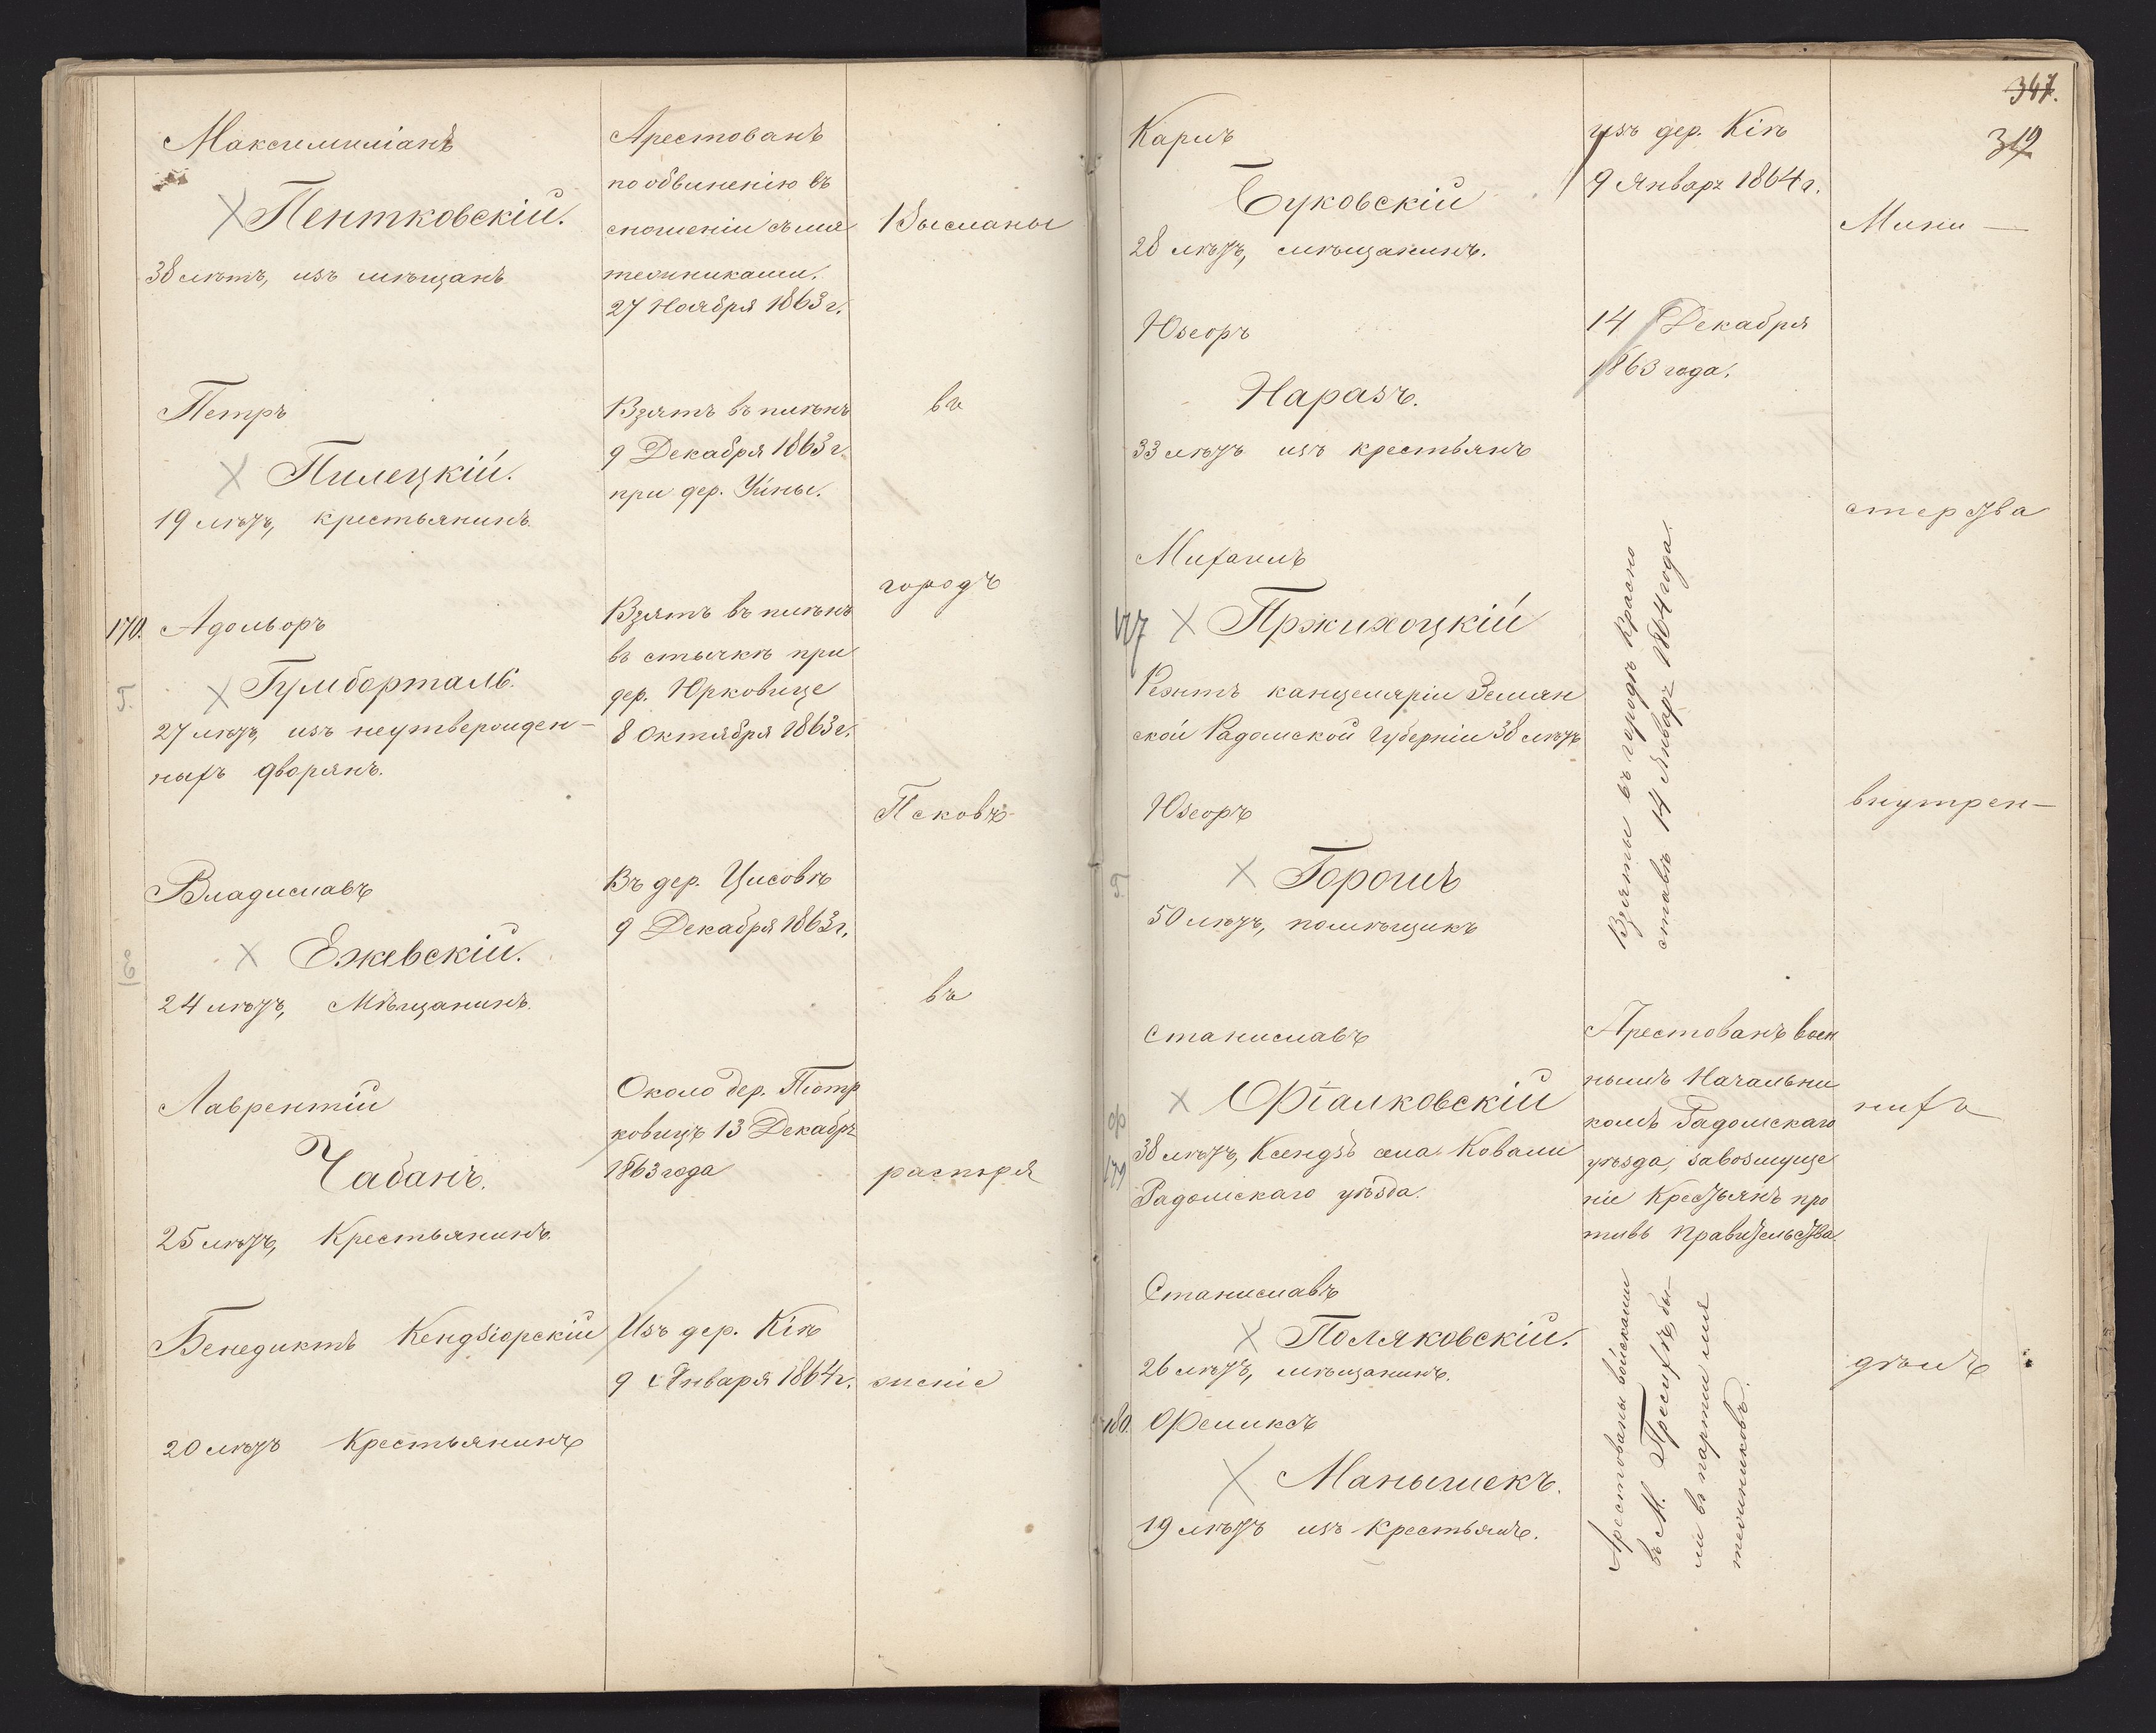 Максимиліанъ
Пентковскій.
38 лѣтъ, изъ мѣщанъ
Арестованъ
по обвиненію въ
сношеніи съ мя
тежниками.
27 Ноября 1863 г.
Высланы
Петръ
Пилецкій.
19 лѣтъ, крестьянинъ.
Взятъ въ плѣнъ
9 Декабря 1863 г.
при дер.
въ
170. Адольфъ
Гумборталь.
27 лѣтъ, изъ неутвержден-
ныхъ дворянъ.
Г.
Взятъ въ плѣнъ
въ стычкѣ при
дер. Юрковице
8 Октября 1863 г.
городъ
Псковъ
Владиславъ
Ежевскій.
24 лѣтъ, Мѣщанинъ.
Е
Въ дер. Цисовѣ
9 Декабря 1863 г.
въ
Лаврентій
Чабанъ.
25 лѣтъ, Крестьянинъ.
Около дер. Піотр
ковицъ 13 Декабр.
1863 года
распоря
Бенедиктъ Кендзіорскій
20 лѣтъ Крестьянинъ
Изъ дер. Кіѣ
9 Января 1864 г.
женіе
347.
319
Карлъ
Буковскій
28 лѣтъ, мѣщанинъ.
изъ дер. Кіѣ
9 Январ. 1864 г.
Мини—
Юзефъ
Наразъ.
33 лѣтъ изъ крестьянъ
14 Декабря
1863 года.
стерства
Михаилъ
177 Пржихоцкій
Режтъ канцеляріи Землян
ской Радомской Губерніи 38 лѣтъ
Юзефъ
Горошъ
50 лѣтъ, помѣщикъ
Г.
Взяты въ городѣ Красно
ставѣ 14 Январ. 1864 года.
внутрен—
Станиславъ
Фіалковскій
38 лѣтъ, Ксендзъ села Ковали
Радомскаго уѣзда.
Ф
179
Арестованъ воен
нымъ Начальни
комъ Радомскаго
уѣзда, за возмуще
ніе Крестьянъ про
тивъ Правительства.
нихъ
Станиславъ
Поляковскій.
26 лѣтъ, мѣщанинъ.
180. Феликсъ
Манышекъ.
19 лѣтъ изъ крестьянъ.
Арестованы войсками
въ М. бы—
ли въ партіи мя
тежниковъ.
дѣлъ